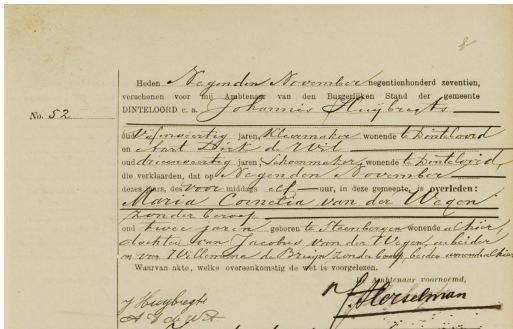 Heden Negenden November negentienhonderd zeventien,
verschenen voor mij Ambtenaar van den Burgerlijken Stand der gemeente
DINTELOORD c. a. Johannis Huijbregts
No. 52
oud Vijfenveertig jaren, Kleermaker wonende te Dinteloord
en Aart Dirk de Wit
oud drieenveertig jaren, Schoenmaker, wonende te Dinteloord,
die verklaarden, dat op Negenden November
dezes jaars, des voor middags elf uur, in deze gemeente, is overleden:
Maria Cornelia van der Wegen
zonder beroep
oud twee jaren geboren te Steenbergen wonende alhier,
dochter van Jacobus van der Wegen arbeider
en van Willemina de Bruijn zonder beroep, beiden wonende alhier
Waarvan akte, welke overeenkomstig de wet is voorgelezen.
De Ambtenaar voornoemd,
J Huybregts
A D de Wit